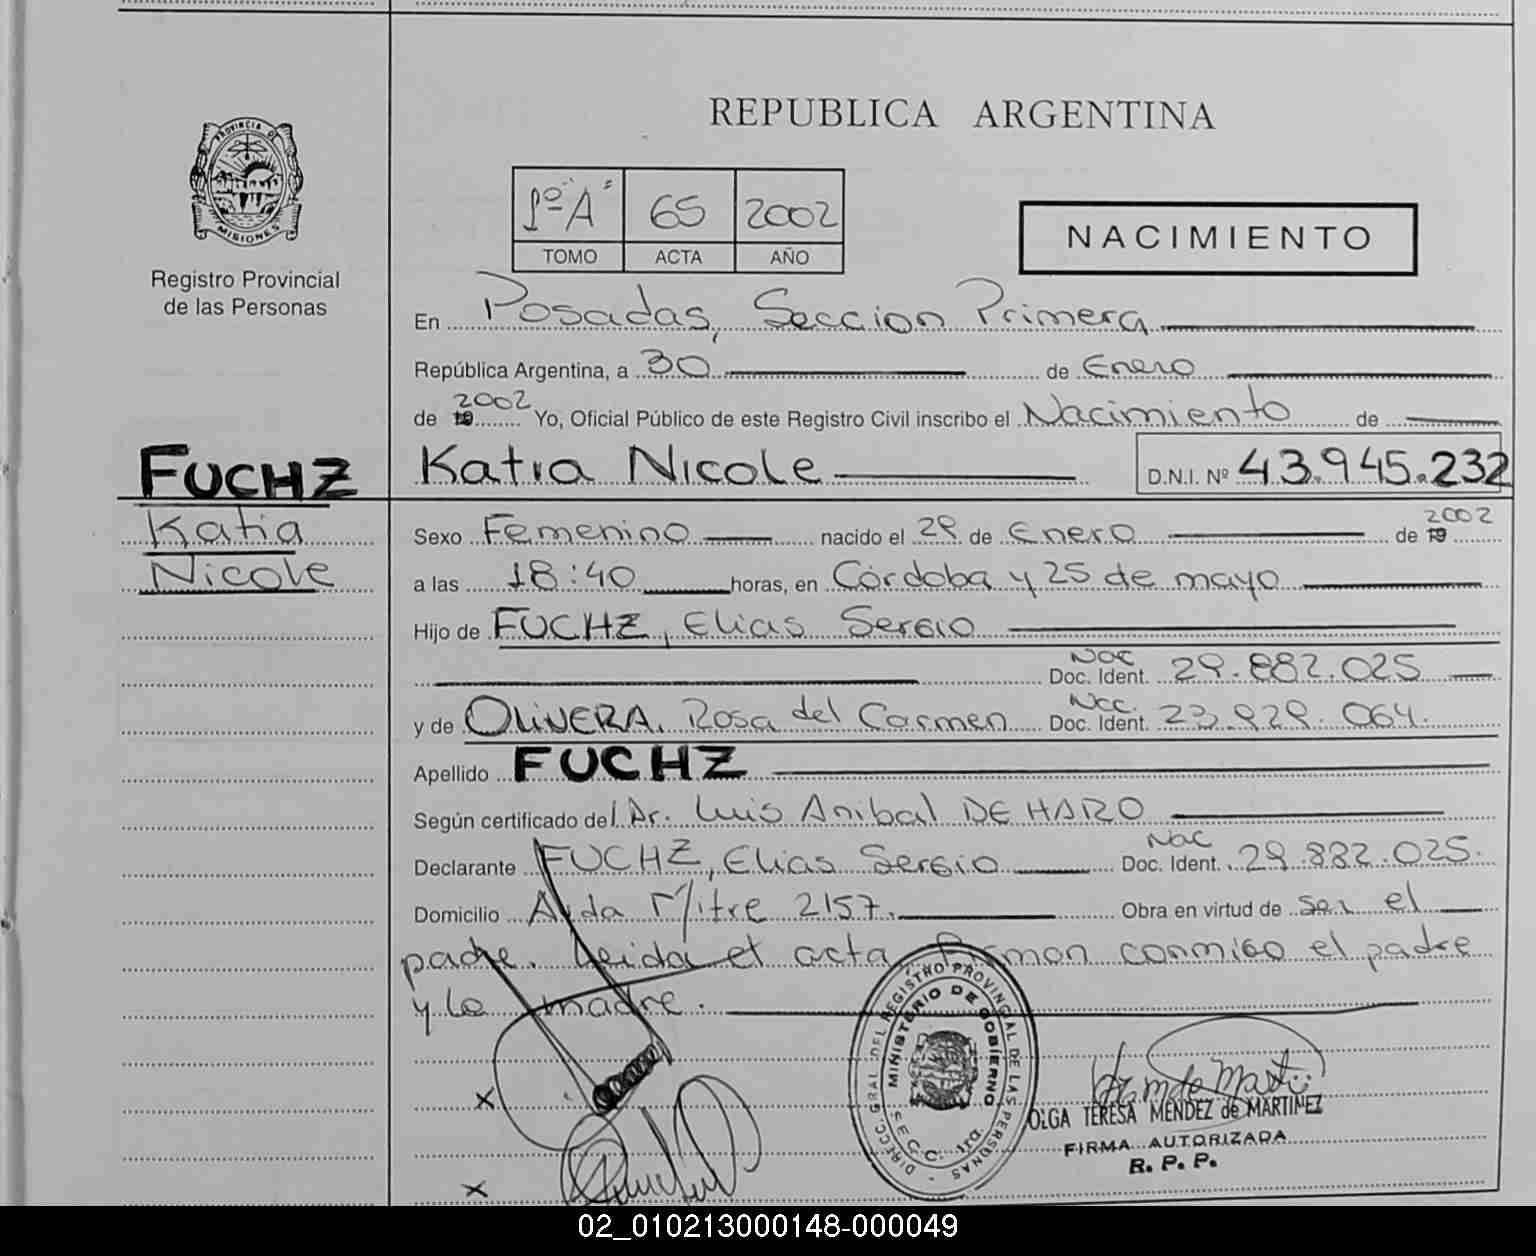 REPUBLICA ARGENTINA
PROVINCIA D MISIONES
Registro Provincial
de las Personas
1º "A" 65 2002
TOMO ACTA AÑO
NACIMIENTO
En Posadas, Seccion Primera
República Argentina, a 30 de Enero
de 19 2002 Yo, Oficial Público de este Registro Civil inscribo el Nacimiento de
FUCHZ Katia Nicole D.N.I. Nº 43.945.232
Katia
Nicole
Sexo Femenino nacido el 29 de Enero de 19 2002
a las 18:40 horas, en Córdoba y 25 de mayo
Hijo de FUCHZ, Elias Sergio
Doc. Ident. Nac 29.882.025
y de OLIVERA, Rosa del Carmen Doc. Ident. Nac. 23.929.064.
Apellido FUCHZ
Según certificado del Dr. Luis Anibal DE HARO
Declarante FUCHZ, Elias Sergio Doc. Ident. Nac 29.882.025.
Domicilio Avda Mitre 2157. Obra en virtud de ser el
padre. Leida el acta Firman conmigo el padre
y la madre.
DIRECC. GRAL DEL REGISTRO PROVINCIAL DE LAS PERSONAS
MINISTERIO DE GOBIERNO
x
x
OLGA TERESA MENDEZ de MARTINEZ
FIRMA AUTORIZADA
R. P. P.
02_010213000148-000049